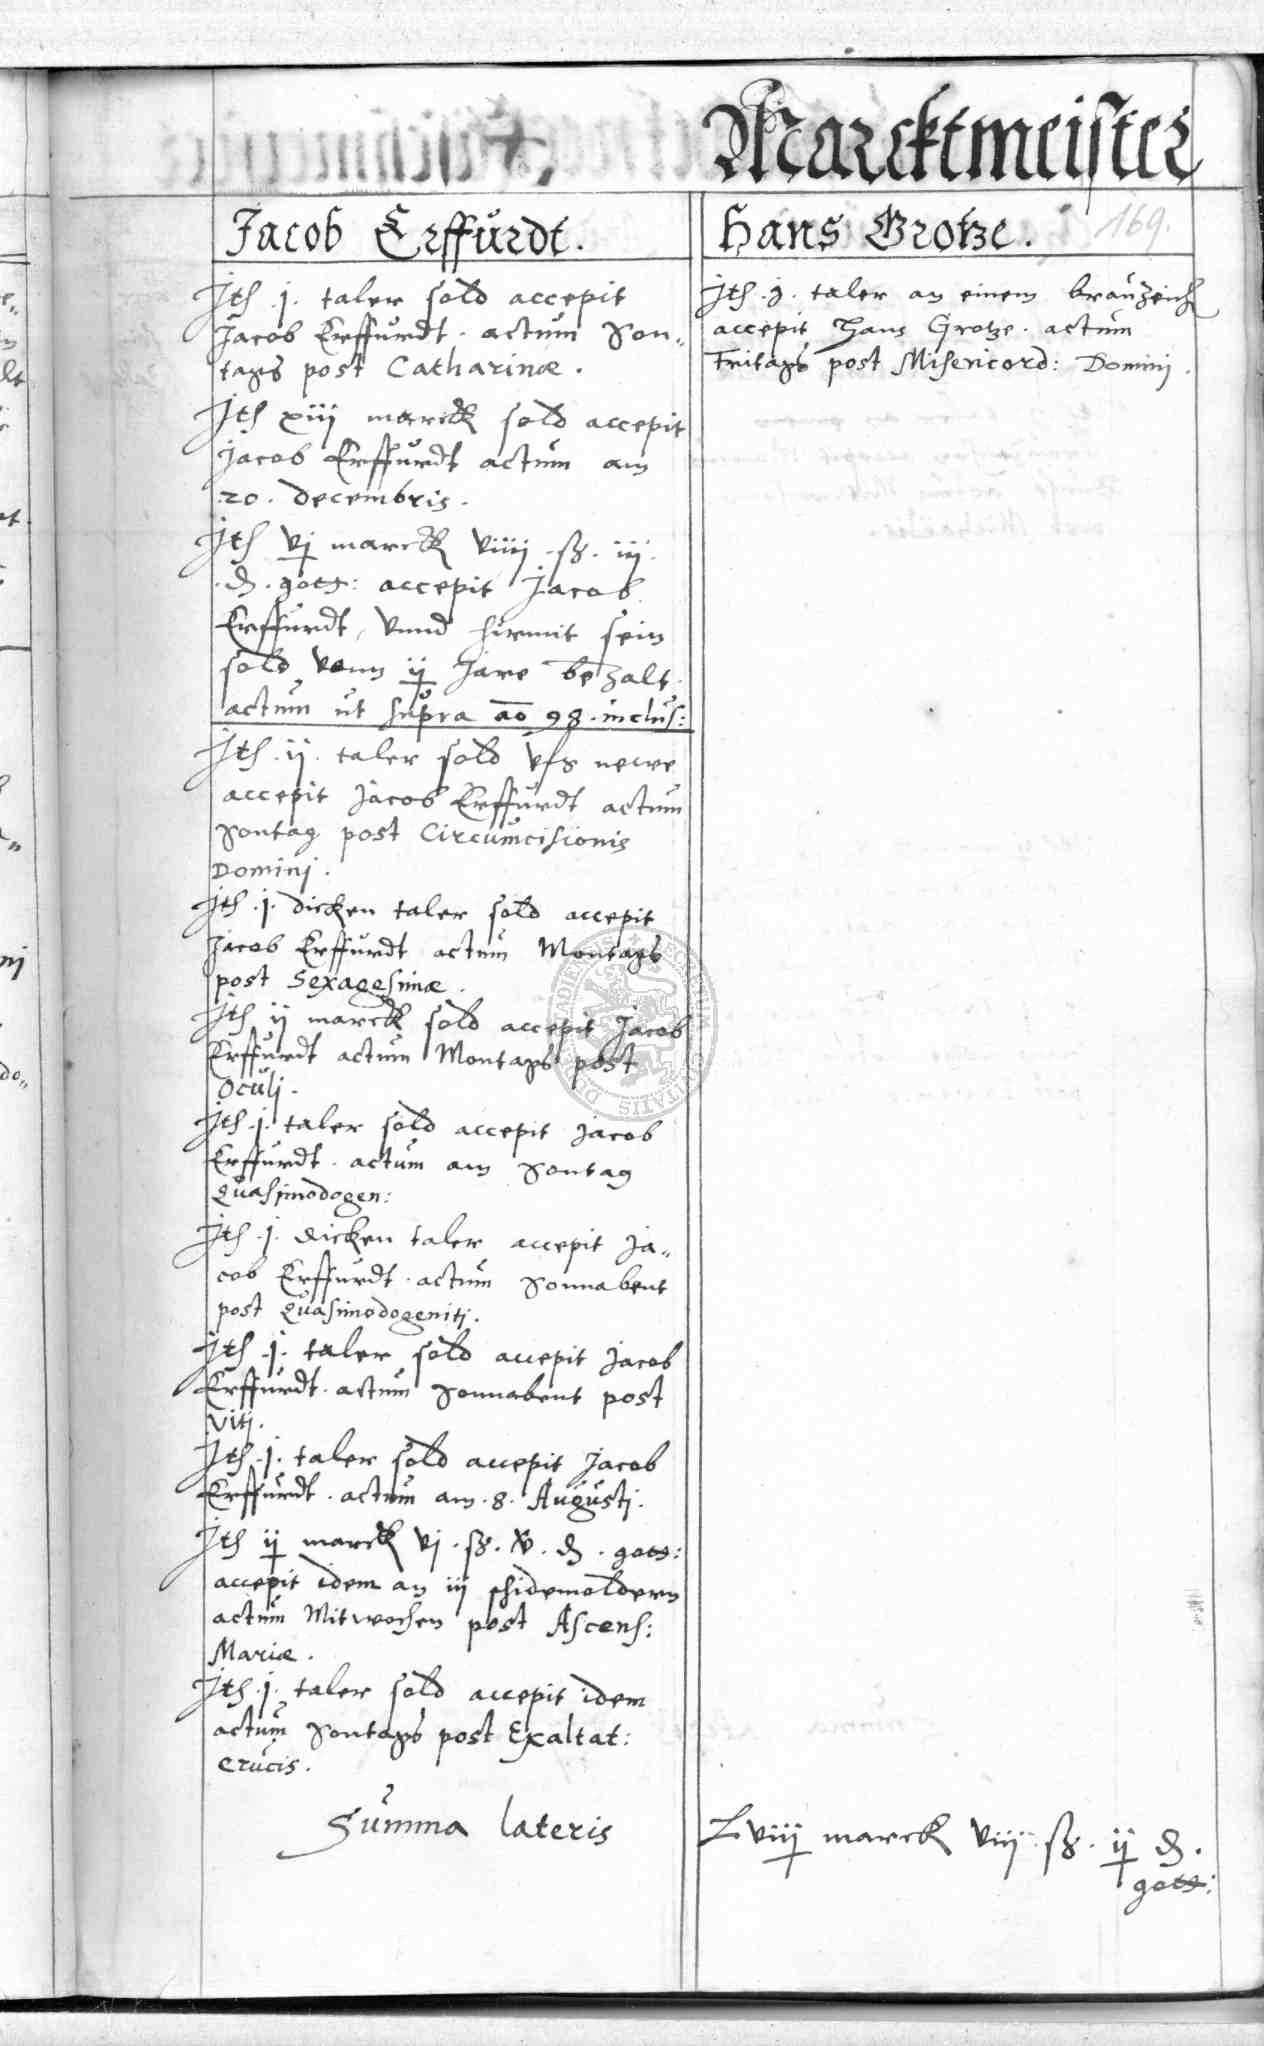 Marcktmeister
169.
Jacob Erffurdt.
Jth .j. taler sold accepit
Jacob Erffurdt. actum Son„
tags post Catharinæ.
Jth xiij marck sold accepit
Jacob Erffurdt actum am
20. decembris.
Jth vj marck viiij .ß. iij.
.₰. gott: accepit Jacob
Erffurdt, vnnd hirmit sein
sold vonn ij Jare bezalt.
actum ut supra ao 98. inclus:
Jth .ij. taler sold vfs newe
accepit Jacob Erffurdt actum
Sontag post Circumcisionis
Dominj.
Jth .j. dicken taler sold accepit
Jacob Erffurdt actum Montags
post Sexagesimæ.
Jth ij marck sold accepit Jacob
Erffurdt actum Montags post
Oculj.
Jth .j. taler sold accepit Jacob
Erffurdt. actum am Sontag
Quasimodogen:
Jth .j. dicken taler accepit Ja„
cob Erffurdt. actum Sonnabent
post Quasimodogenitj.
Jth .j. taler sold accepit Jacob
Erffurdt. actum Sonnabent post
Vitj.
Jth .j. taler sold accepit Jacob
Erffurdt. actum am .8. Augustj.
Jth ij marck vj .ß. v. ₰. gott:
accepit idem an iij
actum Mitwochen post Ascens:
Mariæ.
Jth .j. taler sold accepit idem
actum Sontags post Exaltat:
crucis.
Hans Grotze.
Jth .j. taler an einem brauzeich
accepit Hans Grotze. actum
Fritags post Misericord: Dominj.
Summa lateris Lviij marck viij ß. ij ₰.
gott: